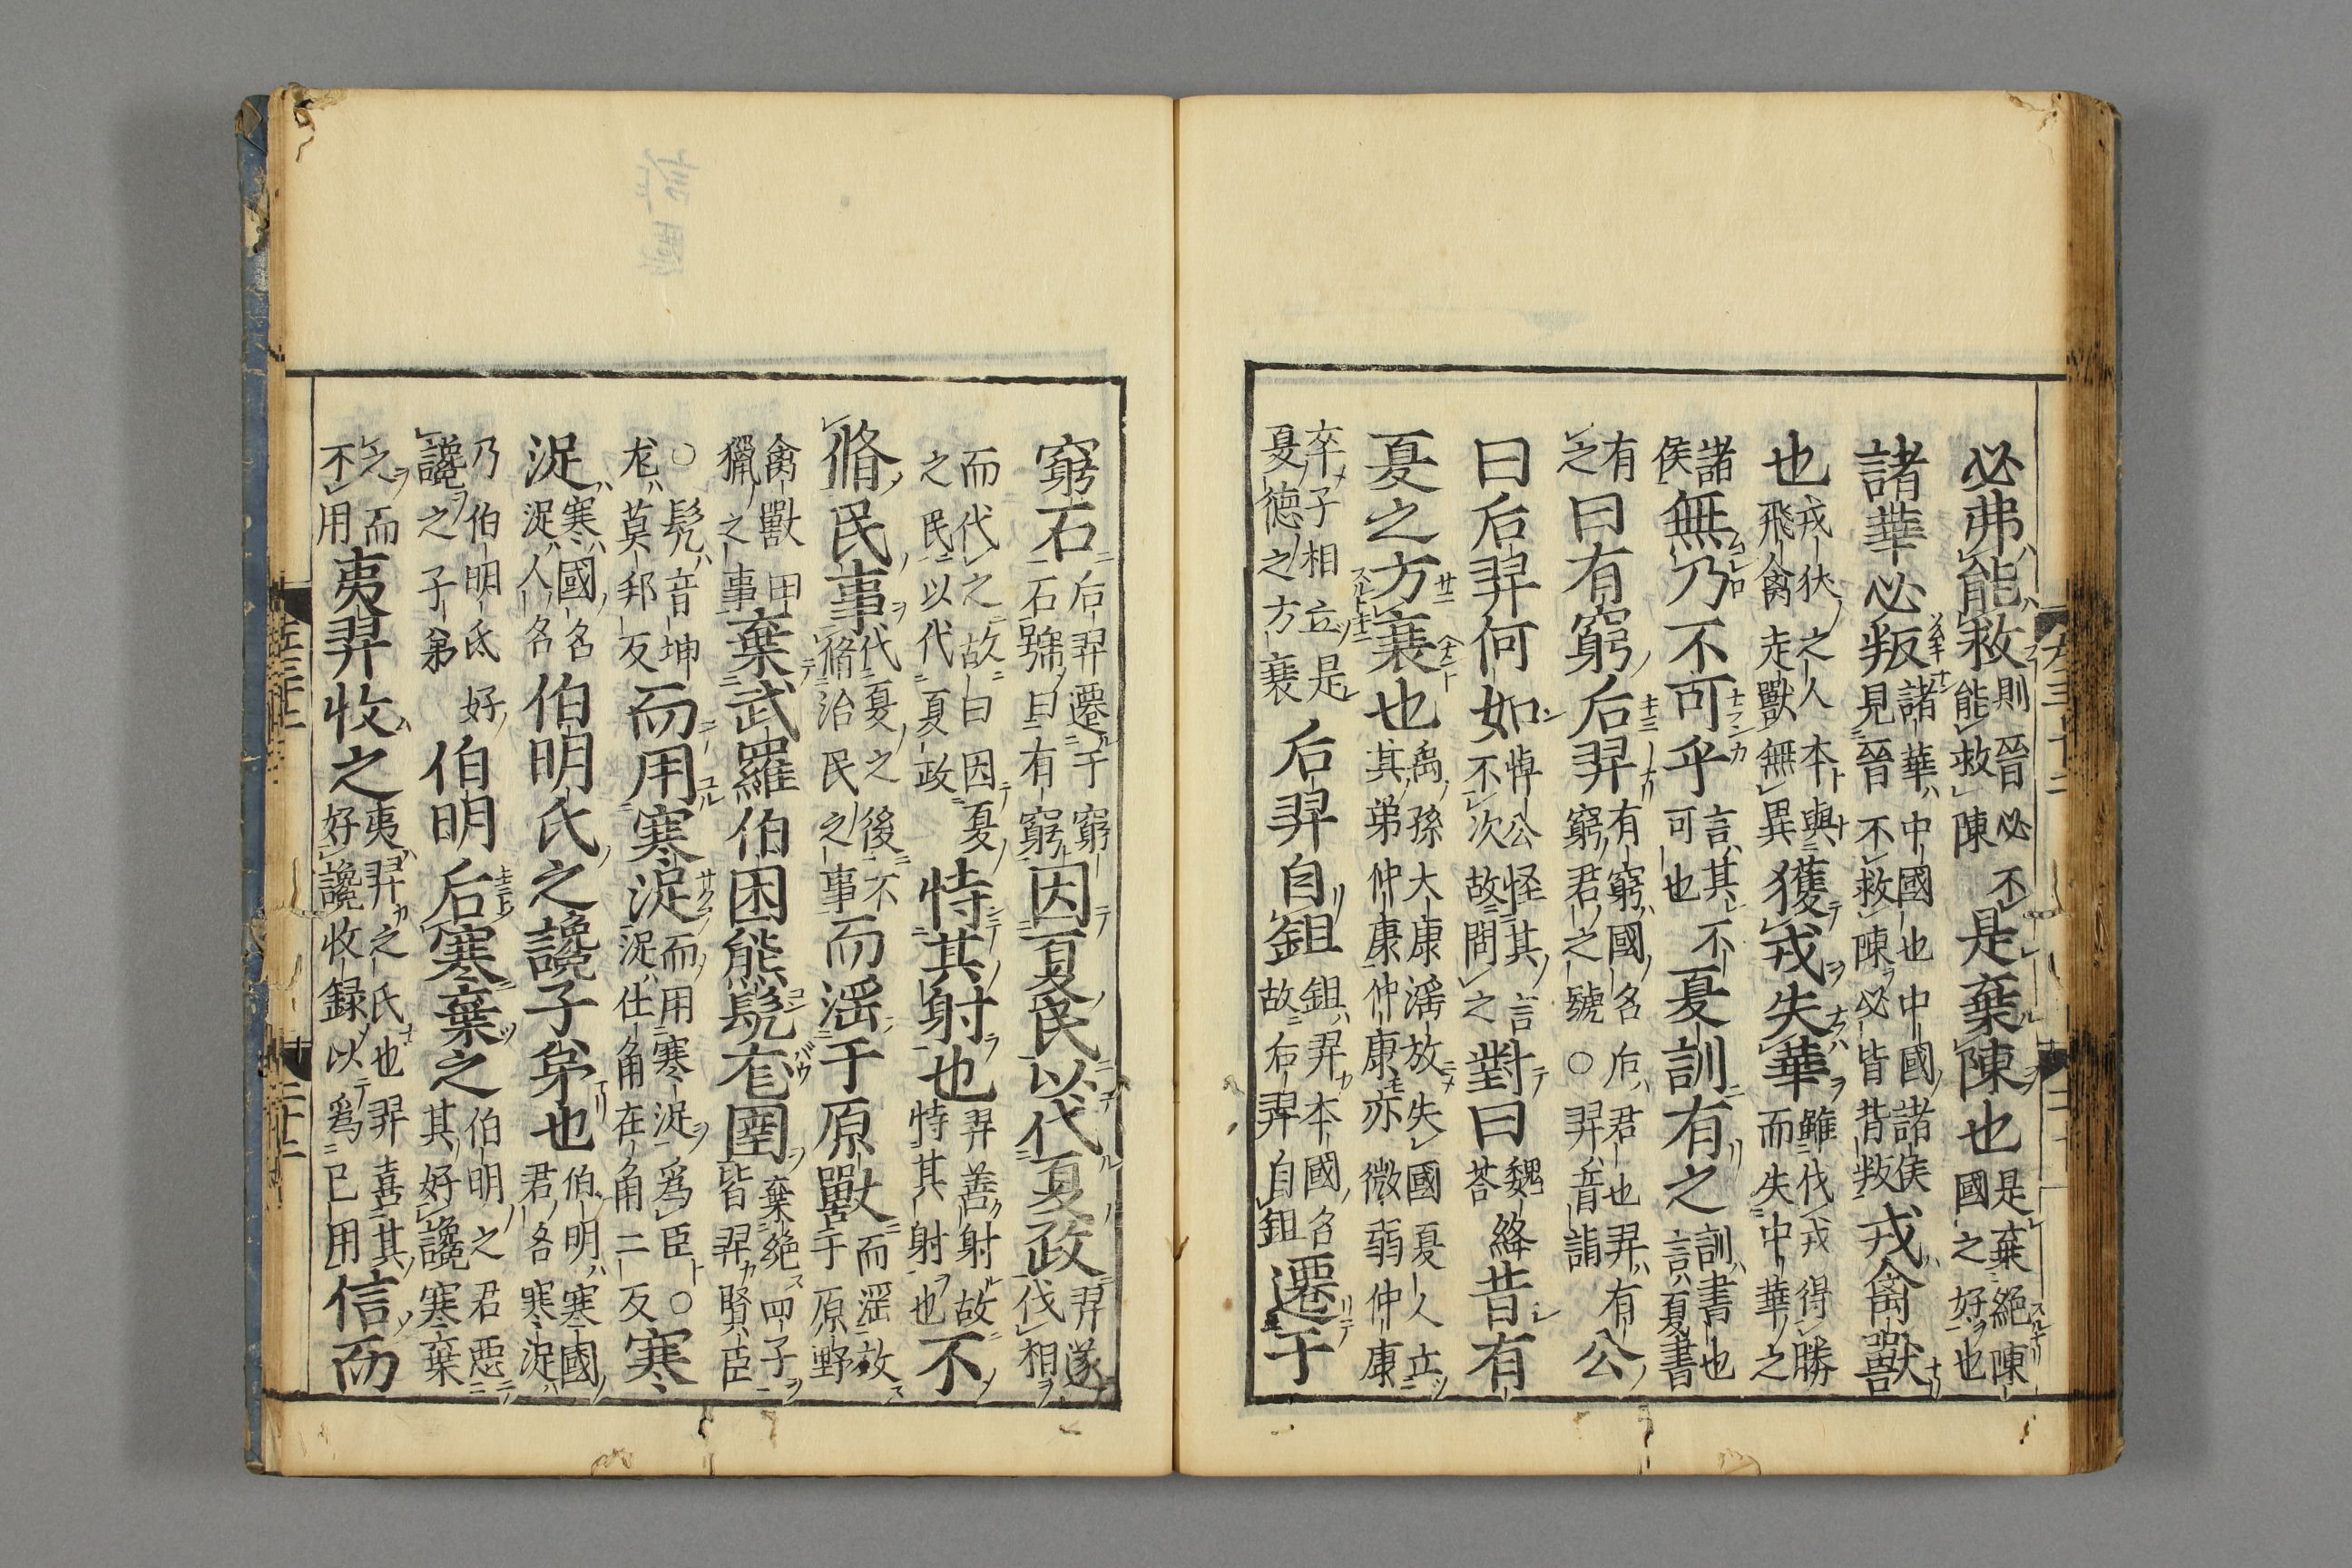 必弗能救則晉必不能救陳是棄陳也是棄絶陳國之好也
諸華必叛諸華中國也中國諸侯見晉不救陳必皆背叛戎禽獸
也戎狄之人本與飛禽走獸無異獲戎失華雖伐戎得勝而失中華之
諸侯無乃不可乎言其不可也夏訓有之訓書也言夏書
有之曰有窮后羿有窮國名后君也羿有窮君之號○羿音詣公
曰后羿何如悼公怪其言不次故問之對曰魏絳荅昔有
夏之方衰也禹孫大康滛放失國夏人立其弟仲康仲康亦微弱仲康
卒子相立是夏德之方衰后羿自鉏鉏羿本國名故后羿自鉏遷于
窮石后羿遷于窮石號曰有窮因夏民以代夏政羿遂伐相
而代之故曰因夏之民以代夏政恃其射也羿善射故恃其射也不
脩民事代夏之後不脩治民之事而滛于原獸而滛放于原野
禽獸田獵之事棄武羅伯困熊髠尨圉棄絶四子皆羿賢臣
○髠音坤尨莫邦反而用寒浞而用寒浞爲臣○浞仕角在角二反寒
浞寒國名浞人名伯明氏之讒子弟也伯明寒國君名寒浞
乃伯明氏好讒之子弟伯明后寒棄之伯明之君惡其好讒寒棄
之而不用夷羿收之夷羿之氏也羿喜其好讒收録以爲已用信而